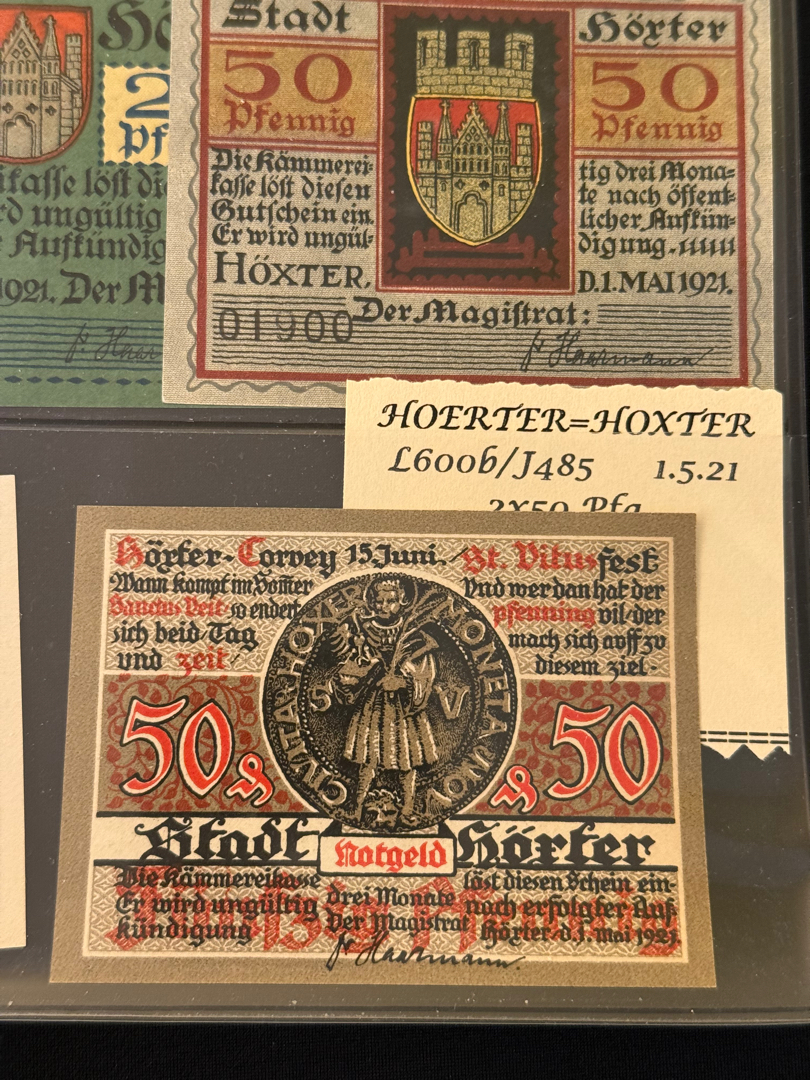 Hö
2
Pf
kasse löst die
rd ungültig
r Aufkündig
1921. Der M
Haar
Stadt Höxter
50 50
Pfennig Pfennig
Die Kämmerei=
kasse löst diesen
Gutschein ein.
Er wird ungül=
tig drei Mona=
te nach öffent=
licher Aufkün=
digung.
HÖXTER, D.1.MAI 1921.
Der Magistrat:
01900
Haarmann
HOERTER=HOXTER
L600b/J485 1.5.21
2x50 Pfg
Höxter-Corvey 15 Juni. St. Vitusfest
Wann kompt im Sommer
Sanctus Veit so endert
sich beid Tag
und zeit
Und wer dan hat der
pfenning vil der
mach sich auff zu
diesem ziel-
CIVITA HOXER MONETA NOV
S V
50 50
Stadt Notgeld Höxter
Die Kämmereikasse löst diesen Schein ein-
Er wird ungültig drei Monate nach erfolgter Auf
kündigung Der Magistrat Höxter d. 1. Mai 1921.
Haarmann.